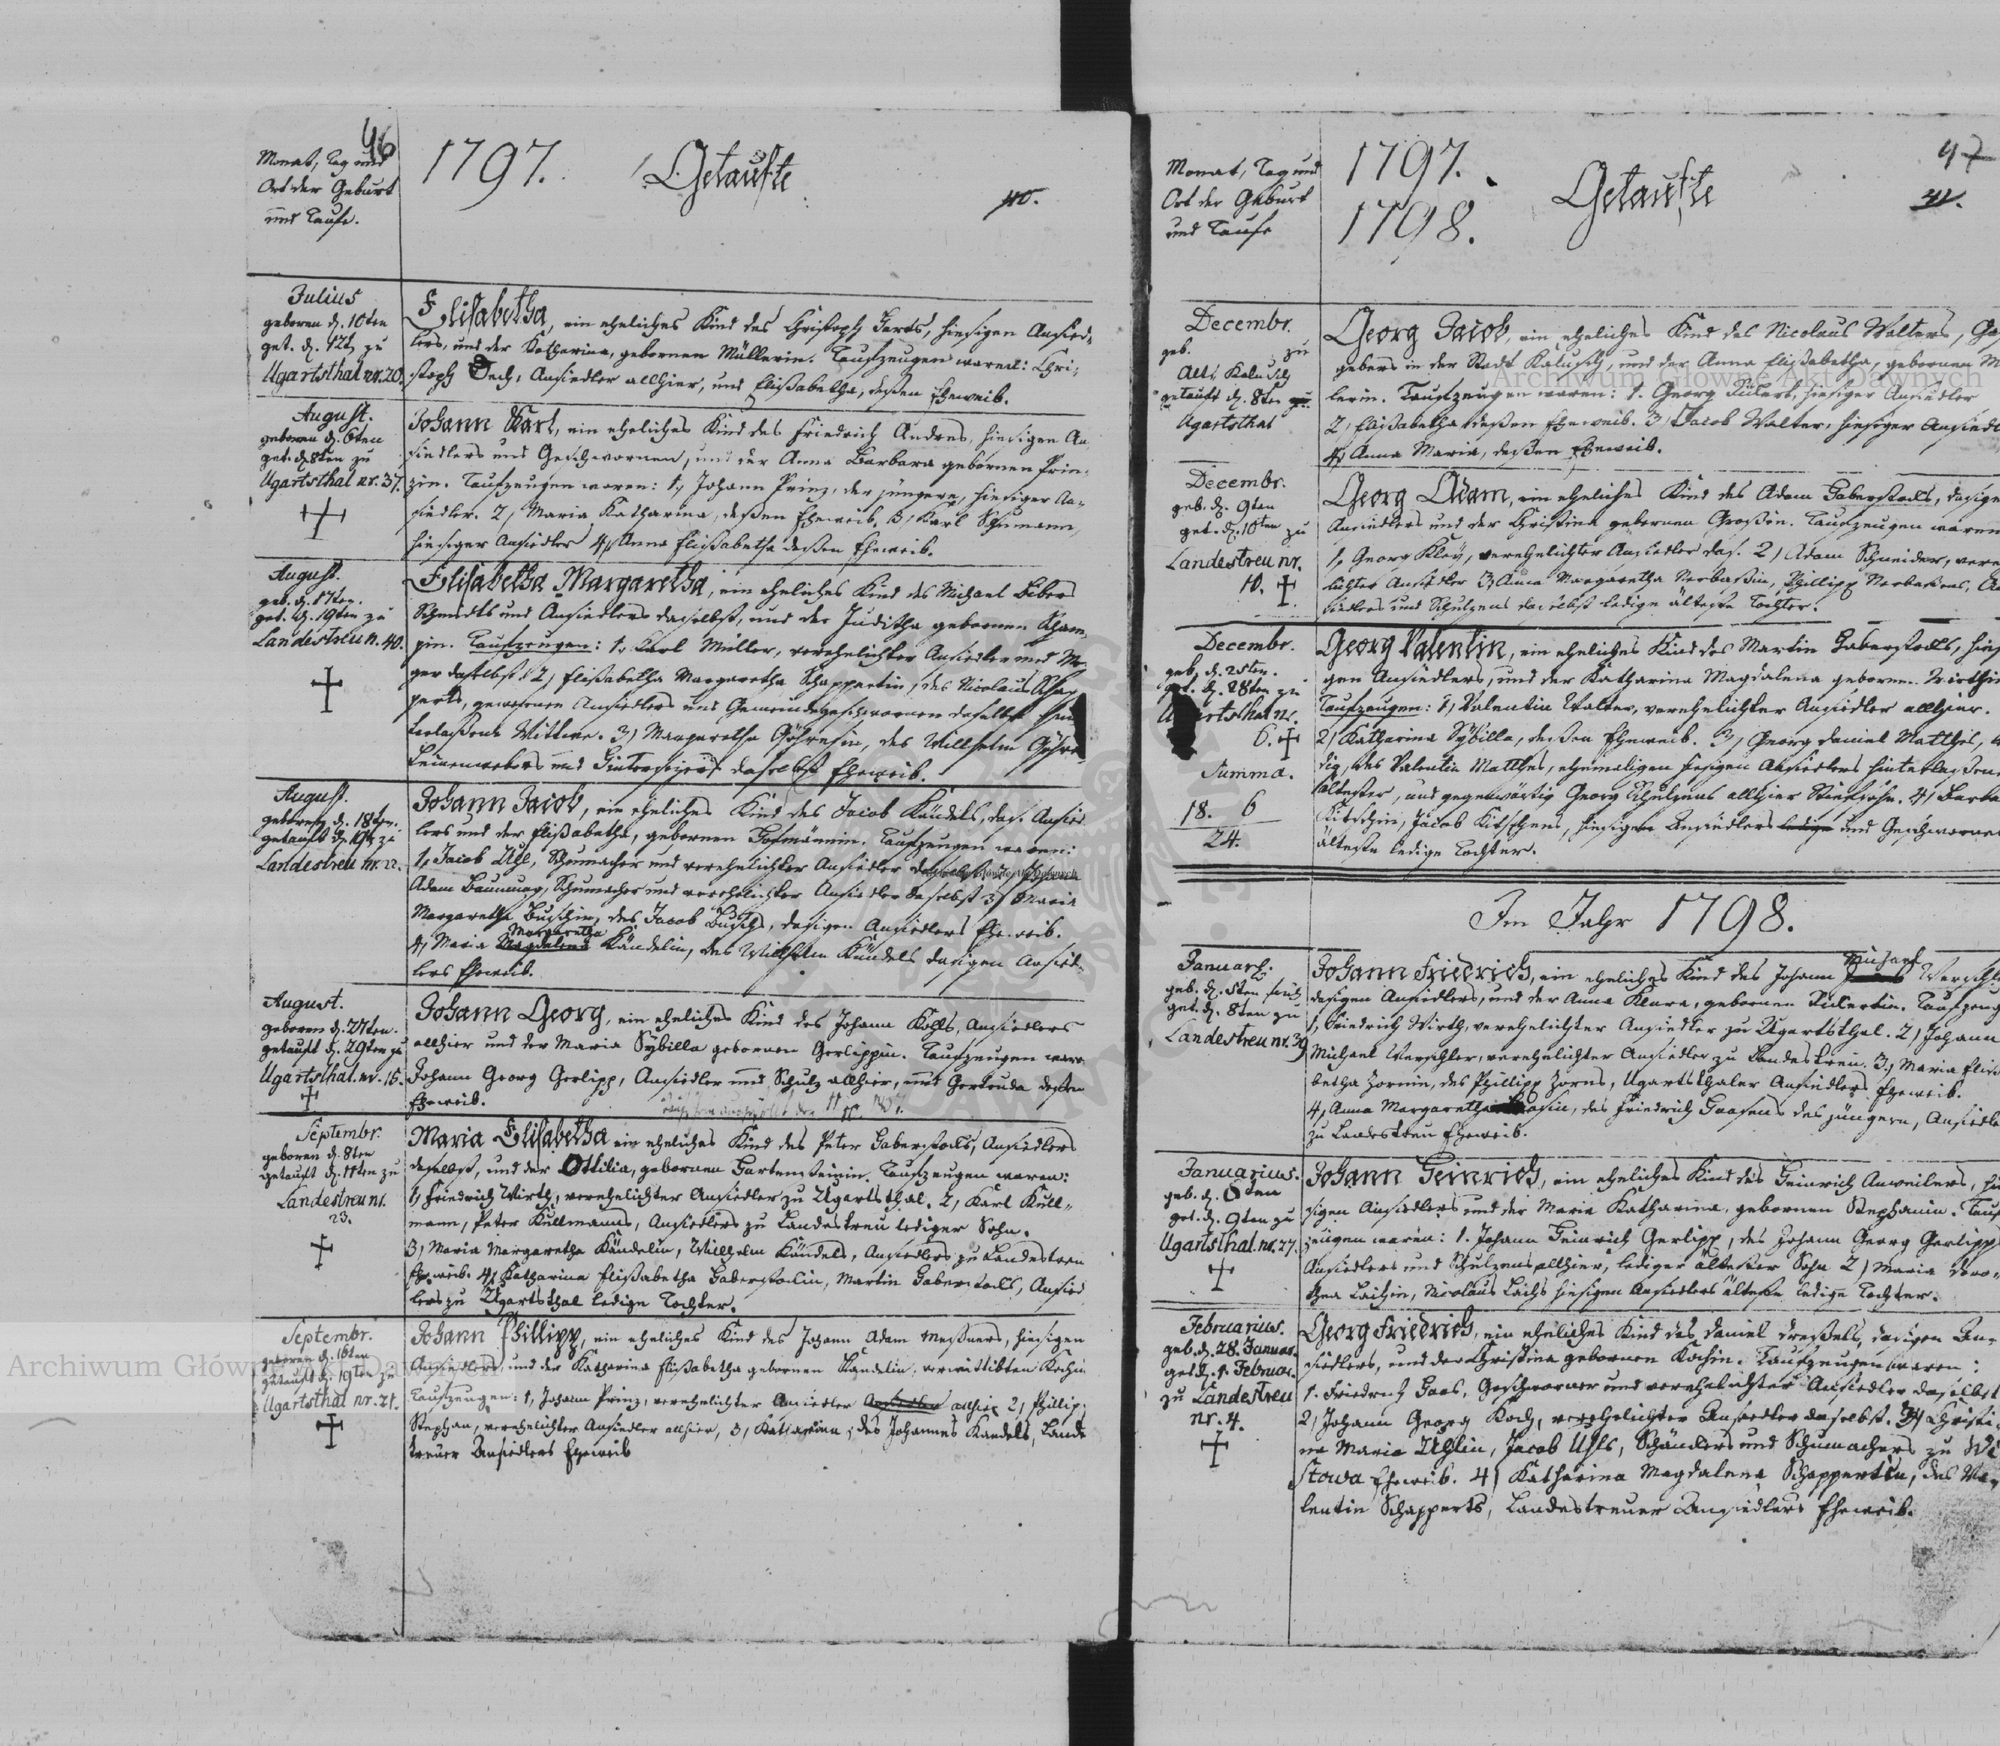 46
Monat, Tag und
Ort der Geburt
und Taufe.
1797. Getaufte
40.
Julius
geboren d. 10ten
get. d. 12t zu
Ugartsthal nr. 20.
Elisabetha, ein eheliches Kind des Christoph Harts, hiesigen Ansied-
lers, und der Katharina, gebornen Müllerin. Taufzeugen waren: Chri-
stoph Oech, Ansiedler allhier, und Elißabetha, deßen Eheweib.
August.
geboren d. 6ten
get. d. 8ten zu
Ugartsthal nr. 37.
Johann Karl, ein eheliches Kind des Friedrich Andres, hiesigen An-
siedlers und Geschwornen, und der Anna Barbara gebornen Prin-
zin. Taufzeugen waren: 1, Johann Prinz, der jüngere, hiesiger An-
siedler. 2, Maria Katharina, deßen Eheweib. 3, Karl Schumann,
hiesiger Ansiedler 4, Anna Elißabetha deßen Eheweib.
August.
geb. d. 17ten.
get. d. 19ten zu
Landestreu n. 40.
Elisabetha Margaretha, ein eheliches Kind des Michael Bibers
Schmidts und Ansiedlers daselbst, und der Juditha gebornen
pin. Taufzeugen: 1, Karl Müller, verehelichter Ansiedler und
ger daselbst 2, Elißabetha Margaretha Schappertin, des Nicolaus Schap-
perts, gewesenen Ansiedlers und Gemeindegeschwornen daselbst
terlaßene Wittwe. 3, Margaretha des Willhelm
Leinenwebers und daselbst Eheweib.
August.
geboren d. 18ten.
getauft d. 19t zu
Landestreu nr.
Johann Jacob, ein eheliches Kind des Jacob Kändels, das. Ansied-
lers und der Elißabetha, gebornen Hofmännin. Taufzeugen waren:
1, Jacob Uhl, Schumacher und verehelichter Ansiedler daselbst
Adam Baumung, Schumacher und verehelichter Ansiedler daselbst 3, Maria
Margaretha Buschin, des Jacob Buschs, dasigen Ansiedlers Eheweib.
Margaretha
4, Maria Magdalena Kändelin, des Willhelm Kändels dasigen Ansied-
lers Eheweib.
August.
geboren d. 27ten.
getauft d. 29ten zu
Ugartsthal nr. 15.
Johann Georg, ein eheliches Kind des Johann Kolls, Ansiedlers
allhier und der Maria Sybilla gebornen Gerlippin. Taufzeugen waren
Johann Georg Gerlipp, Ansiedler und Schulz allhier, und Gertruda deßen
Eheweib.
Septembr.
geboren d. 8ten
getauft d. 11ten zu
Landestreu nr.
23.
Maria Elisabetha ein eheliches Kind des Peter Haberstocks, Ansiedlers
daselbst, und der Ottilia, gebornen Hartensteinin. Taufzeugen waren:
1, Friedrich Wirth, verehelichter Ansiedler zu Ugartsthal. 2, Karl Kull-
mann, Peter Kullmanns, Ansiedlers zu Landestreu lediger Sohn.
3, Maria Margaretha Kändelin, Willhelm Kändels, Ansiedlers zu Landestreu
Eheweib. 4, Katharina Elißabetha Haberstockin, Martin Haberstocks, Ansied-
lers zu Ugartsthal ledige Tochter.
Septembr.
geboren d. 16ten
getauft d. 19ten zu
Ugartsthal nr. 21.
Johann Phillipp, ein eheliches Kind des Johann Adam Meßners, hiesigen
Ansiedlers und der Katharina Elißabetha gebornen Kändelin, verwittibten Kochin
Taufzeugen: 1, Johann Prinz, verehelichter Ansiedler Ansiedler allhier 2, Phillip
Stephan, verehelichter Ansiedler allhier, 3, Katharina, des Johannes Kandels, Lande
treuer Ansiedlers Eheweib
47
Monat, Tag und
Ort der Geburt
und Taufe
1797.
1798.
Getaufte
41.
Decembr.
geb. zu
Alt Kalusch
getauft d. 8ten zu
Ugartsthal
Georg Jacob, ein eheliches Kind des Nicolaus Walters,
gebers in der Stadt Kalusch, und der Anna Elißabetha, gebornen
lerin. Taufzeugen waren: 1. Georg hiesiger Ansiedler
2, Elißabetha deßen Eheweib. 3, Jacob Walter, hiesiger Ansiedl
4, Anna Maria, deßen Eheweib.
Decembr.
geb. d. 9ten
get. d. 10ten zu
Landestreu nr.
10.
Georg Adam, ein eheliches Kind des Adam Haberstocks, dasige
Ansiedlers und der Christina gebornen Großin. Taufzeugen waren
1, Georg Kley, verehelichter Ansiedler das. 2, Adam Schneider, vere
lichter Ansiedler 3, Anna Margaretha Nerbaßin, Phillipp Nerbaßens, An
siedlers und Schulzens daselbst ledige älteste Tochter.
Decembr.
geb. d. 25ten.
get. d. 28ten zu
Ugartsthal nr.
6.
Georg Valentin, ein eheliches Kind des Martin Haberstocks, hies
gen Ansiedlers, und der Katharina Magdalena gebornen Wirthin
Taufzeugen: 1, Valentin Walter, verehelichter Ansiedler allhier.
2, Katharina Sybilla, deßen Eheweib. 3, Georg Daniel Matthes,
dig, des Valentin Matthes, ehemaligen hiesigen Ansiedlers hinterlaßene
ältester, und gegenwärtig Georg Schulzens allhier Stiefsohn. 4, Barba
Kitschin, Jacob Kitschens, hiesigen Ansiedlers ledige und Geschworne
älteste ledige Tochter.
Summa.
18. 6
24.
Im Jahr 1798.
Januari.
geb. d. 5ten früh
get. d. 8ten zu
Landestreu nr. 39
Michael
Johann Friedrich, ein eheliches Kind des Johann Werschl
dasigen Ansiedlers, und der Anna Klara, gebornen Taufzeug
1, Friedrich Wirth, verehelichter Ansiedler zu Ugartsthal. 2, Johann
Michael Werschler, verehelichter Ansiedler zu Landestreu. 3, Maria Elis
betha Zornin, des Phillipp Zorns, Ugartsthaler Ansiedlers Eheweib.
4, Anna Margaretha Haasin, des Friedrich Haasens des jüngern, Ansiedle
zu Landestreu Eheweib.
Januarius.
geb. d. 6ten
get. d. 9ten zu
Ugartsthal nr. 27.
Johann Heinrich, ein eheliches Kind des Heinrich Anweilers, hie
sigen Ansiedlers und der Maria Katharina, gebornen Stephanin. Tauf
zeugen waren: 1. Johann Heinrich Gerlipp, des Johann Georg Gerlipp
Ansiedlers und Schulzens allhier, lediger ältester Sohn 2, Maria Doro-
thea Laihin, Nicolaus Laihs hiesigen Ansiedlers älteste ledige Tochter.
Februarius.
geb. d. 28. Januar.
get. d. 1. Februar.
zu Landestreu
nr. 4.
Georg Friedrich, ein eheliches Kind des Daniel Dreßels, dasigen An-
siedlers, und der Christina gebornen Kochin. Taufzeugen waren:
1. Friedrich Haas, Geschworner und verehelichter Ansiedler daselbst
2, Johann Georg Koch, verehelichter Ansiedler daselbst. 3, Christi-
na Maria Uhlin, Jacob Uhls, Schänkers und Schumachers zu Wi
stowa Eheweib. 4, Katharina Magdalena Schappertin, des Va-
lentin Schapperts, Landestreuer Ansiedlers Eheweib.
Archiwum Główne Akt Dawnych
Archiwum Główne Akt Dawnych